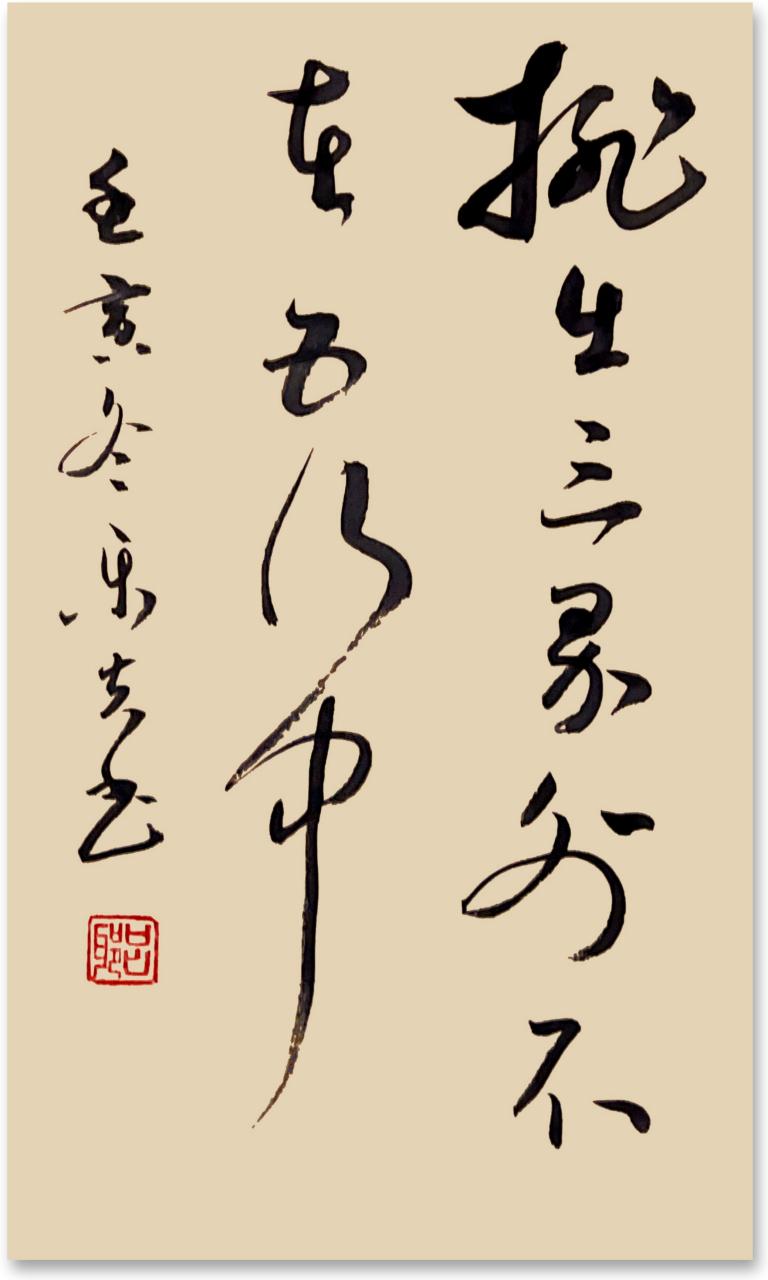 跳出三界外不
在五行中
壬寅冬乐书